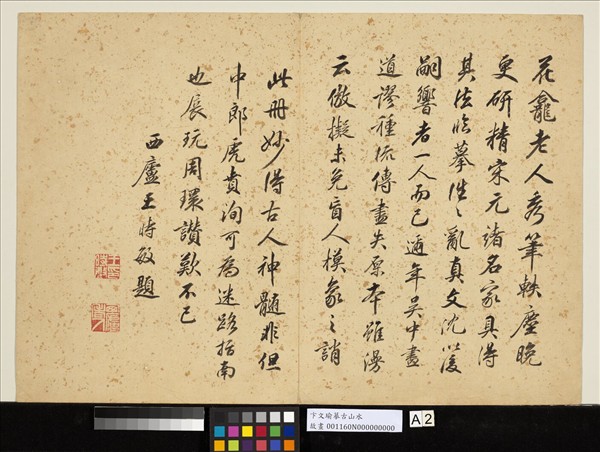 花龕老人秀筆軼塵晚
更研精宋元諸名家具得
其法臨摹往〻亂真文沈以後
嗣響者一人而已邇年吳中畫
道謬種流傳盡失原本雖漫
云倣擬未免盲人模象之誚
此冊妙得古人神髓非但
中郎虎賁洵可為迷路指南
也展玩周環讚歎不已
西廬王時敏題
卞文瑜摹古山水
故畫 001160N000000000
A 2